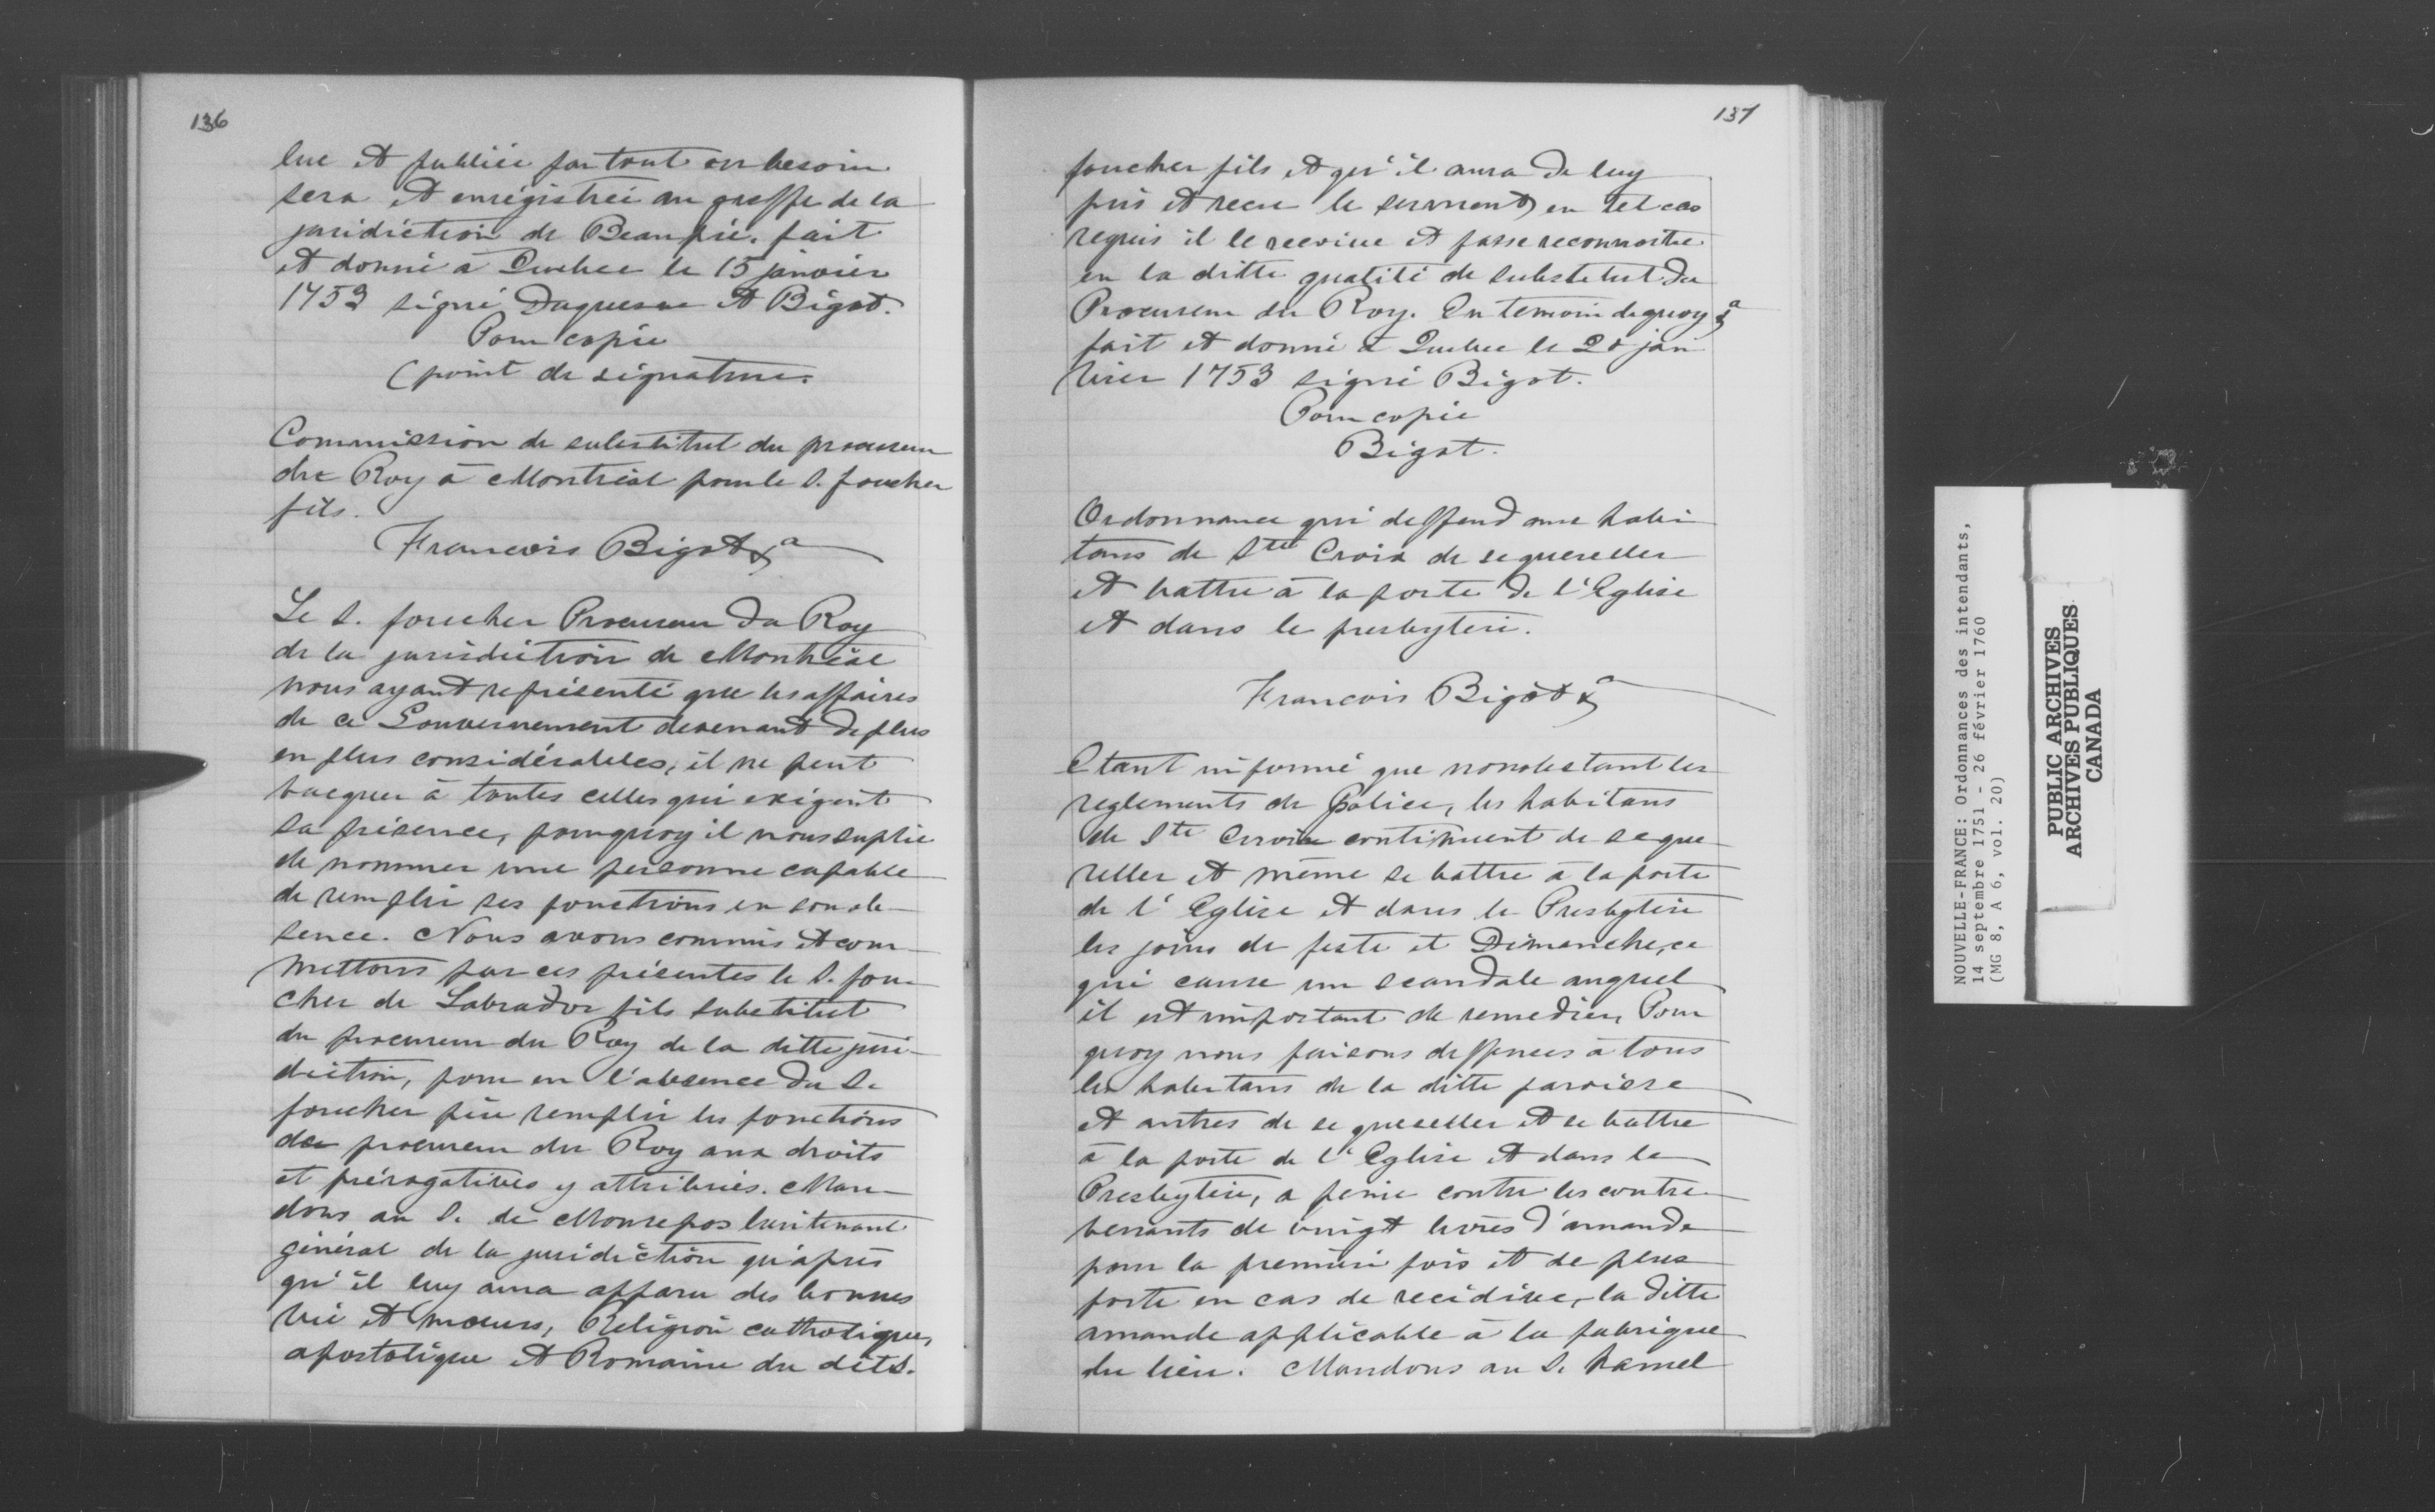 136
lue et publiée partout ou besoin
sera et enrégistrée au greffe de la
juridiction de Beaupré, fait
et donné à Quebec le 15 janvier
1753 signé Duquesne et Bigot.
Pour copie
(point de signature.
Commission de substitut du procureur
du Roy à Montréal pour le S. foucher
fils.
Francois Bigot &a
Le S. foucher Procureur du Roy
de la jurisdiction de Montréal
nous ayant représenté que les affaires
de ce Gouvernement devenant de plus
en plus considérables, il ne peut
vacquer à toutes celles qui exigent
sa présence, pourquoy il nous suplie
de nommer une personne capable
de remplir ses fonctions en son ab-
sence. Nous avons commis et com-
mettons par ces présentes le S. fou-
cher de Labrador fils substitut
du procureur du Roy de la ditte juri-
diction, pour en l'absence du S.
foucher père remplir les fonctions
de procureur du Roy aux droits
et prérogatives y attribués. Man-
dons au S. de Monrepos lieutenant
général de la juridiction qu'après
qu'il luy aura apparu des bonnes
vie et mœurs, Religion catholique,
apostolique et Romaine du dit S.
137
foucher fils et qu'il aura de luy
pris et receu le serment en tel cas
requis il le recoive et fasse reconnoistre
en la ditte qualité de substitut du
Procureur du Roy. En temoin de quoy &a
fait et donné à Quebec le 20 jan
vier 1753 signé Bigot.
Pour copie
Bigot.
Ordonnance qui deffend aux habi
tans de Ste Croix de se quereller
et battre à la porte de l'Eglise
et dans le presbytere.
Francois Bigot &a
Etant informé que nonobstant les
reglements de Police, les habitans
de Ste Croix continuent de se que-
reller et même se battre à la porte
de l'Eglise et dans le Presbytère
les jours de feste et Dimanche, ce
qui cause un scandale auquel
il est important de remedier, Pour
quoy nous faisons deffenses à tous
les habitans de la ditte paroisse
et autres de se quereller et se battre
à la porte de l'Eglise et dans le
Presbytère, a peine contre les contre-
venants de vingt livres d'amande
pour la premiere fois et de plus
forte en cas de recidive, la ditte
amande applicable à la fabrique
du lieu. Mandons au S. hamel
NOUVELLE-FRANCE: Ordonnances des intendants,
14 septembre 1751 - 26 février 1760
(MG 8, A 6, vol. 20)
PUBLIC ARCHIVES
ARCHIVES PUBLIQUES
CANADA